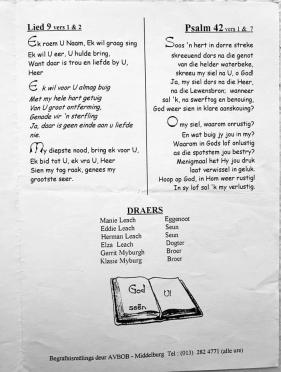 Lied 9 vers 1 & 2
Ek roem U Naam, Ek wil graag sing
Ek wil U eer, U hulde bring,
Want daar is trou en liefde by U,
Heer
Ek wil voor U almag buig
Met my hele hart getuig
Van U groot ontferming,
Genade vir 'n sterfling
Ja, daar is geen einde aan u liefde
nie.
My diepste nood, bring ek voor U,
Ek bid tot U, ek vra U, Heer
Sien my tog raak, genees my
grootste seer.
Psalm 42 vers 1 & 7
Soos 'n hert in dorre streke
skreeuend dors na die genot
van die helder waterbeke,
skreeu my siel na U, o God!
Ja, my siel dors na die Heer,
na die Lewensbron; wanneer
sal 'k, na swerftog en benouing,
God weer sien in klare aanskouing?
O my siel, waarom onrustig?
En wat buig jy jou in my?
Waarom in Gods lof onlustig
as die spotstem jou bestry?
Menigmaal het Hy jou druk
laat verwissel in geluk.
Hoop op God, in Hom weer rustig!
In sy lof sal 'k my verlustig.
DRAERS
Manie Leach Eggenoot
Eddie Leach Seun
Herman Leach Seun
Elza Leach Dogter
Gerrit Myburgh Broer
Klasie Myburg Broer
God U!
seën
Begrafnisreëlings deur AVBOB - Middelburg Tel : (013) 282 4771 (alle ure)